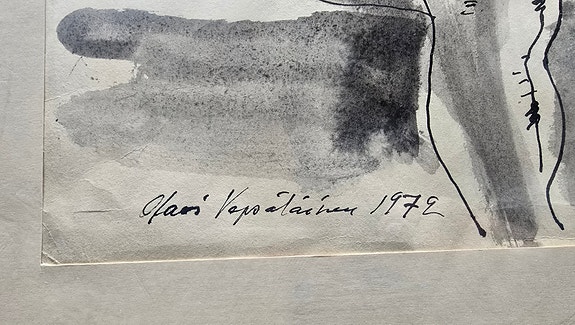 Olavi Vepsäläinen 1972